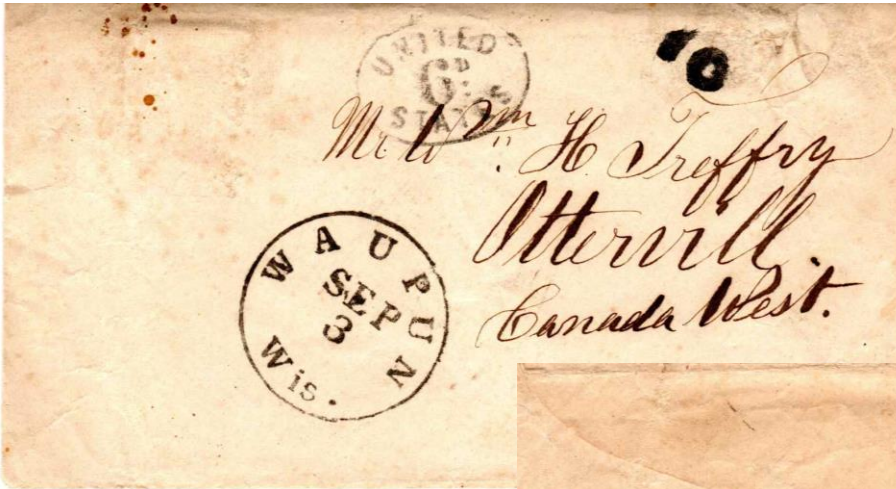 UNITED
6D
STATES
10
Mr Wm H. Treffry
Ottervill
Canada West.
WAUPUN
SEP
3
Wis.